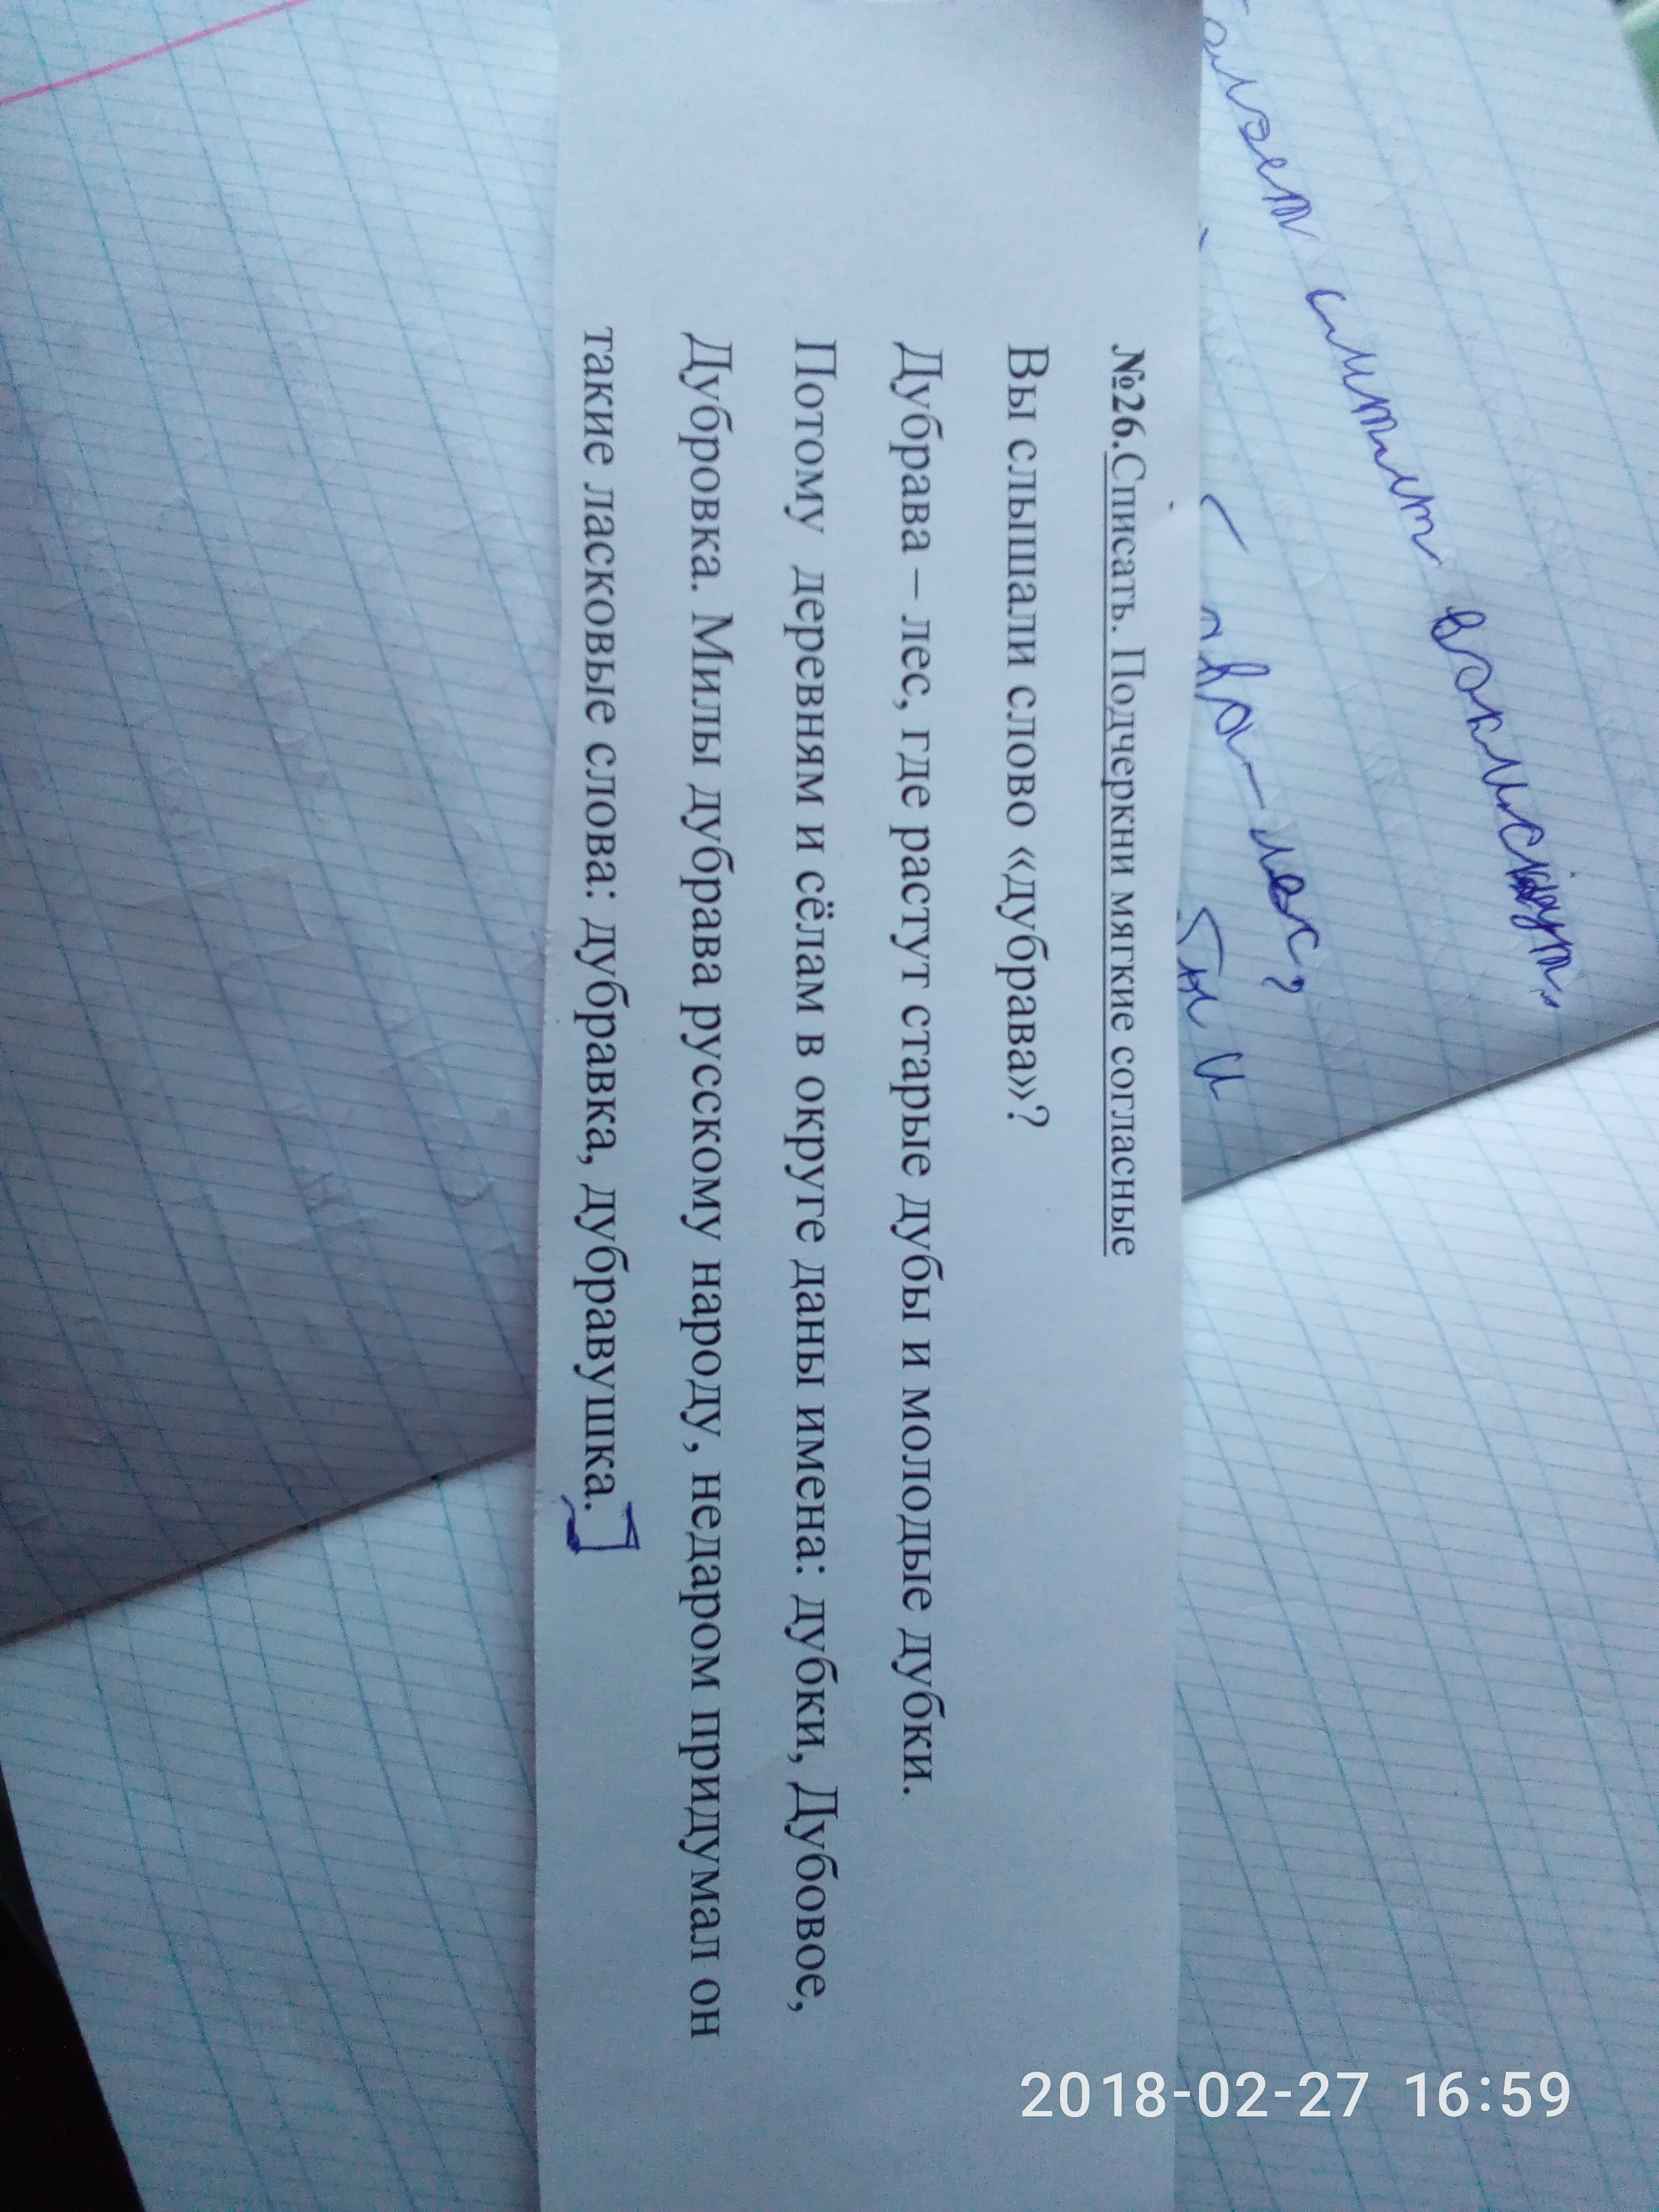 №26.Списать. Подчеркни мягкие согласные
Вы слышали слово «дубрава»?
Дубрава – лес, где растут старые дубы и молодые дубки.
Потому деревням и сёлам в округе даны имена: дубки, Дубовое,
Дубровка. Милы дубрава русскому народу, недаром придумал он
такие ласковые слова: дубравка, дубравушка.
2018-02-27 16:59